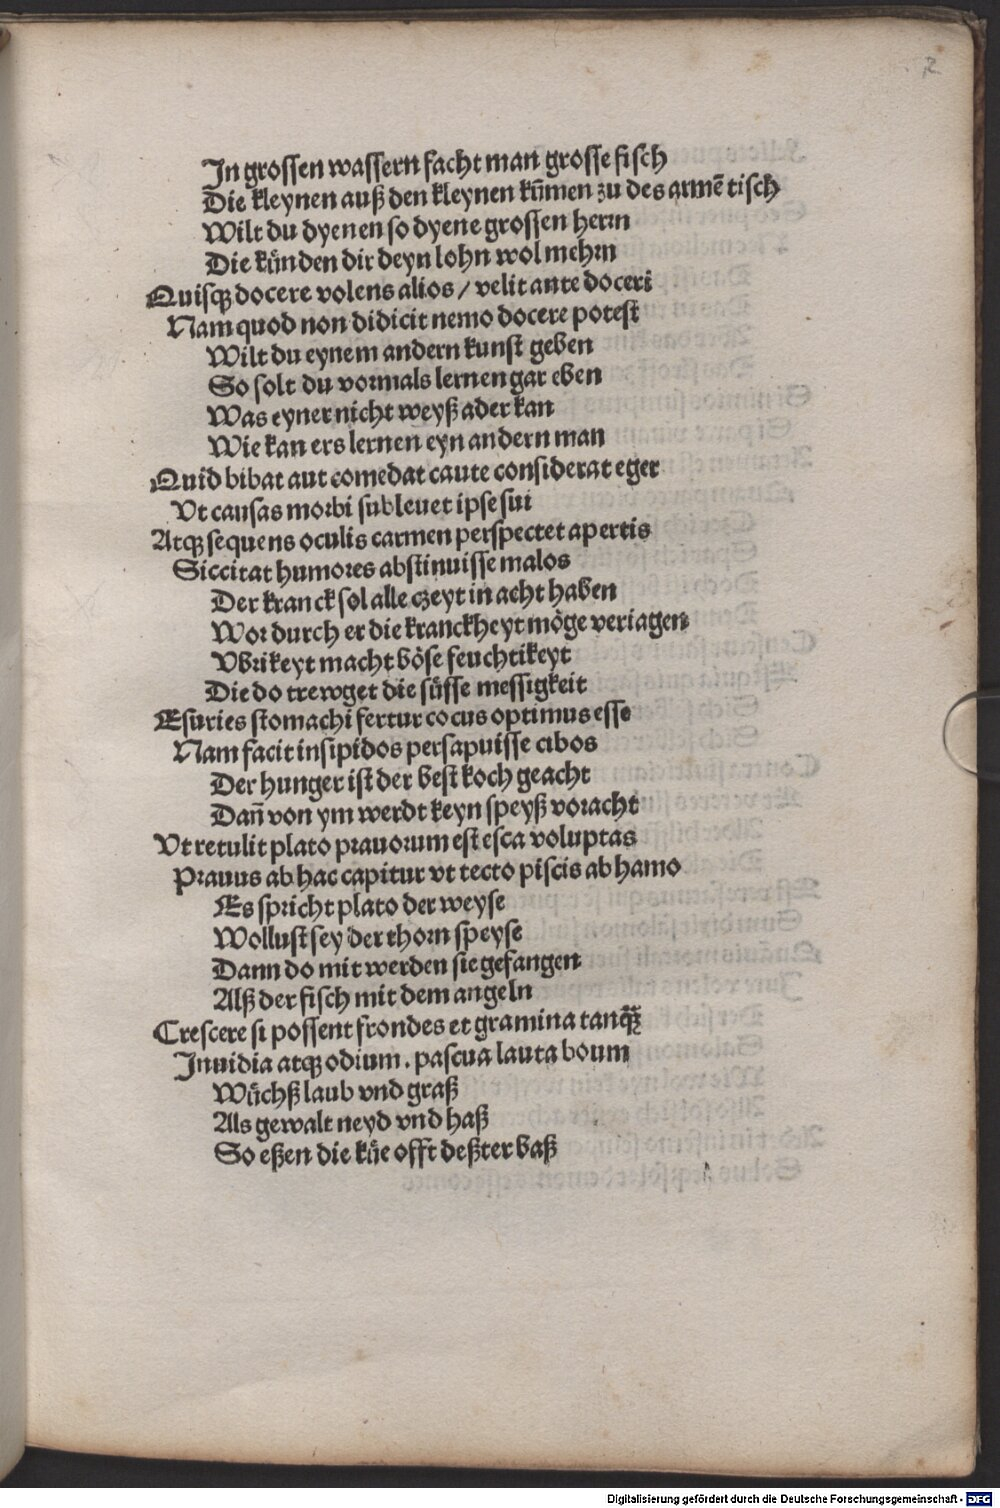 In grossen wassern facht man grosse fisch
Die kleynen auß den kleynen kūmen zu des armē tisch
Wilt du dyenen so dyene grossen herrn
Die künden dir deyn lohn wol mehrn
Quisqꝫ docere volens alios / velit ante doceri
Nam quod non didicit nemo docere potest
Wilt du eynem andern kunst geben
So solt du vormals lernen gar eben
Was eyner nicht weyß ader kan
Wie kan ers lernen eyn andern man
Quid bibat aut comedat caute considerat eger
Vt causas morbi subleuet ipse sui
Atqꝫ sequens oculis carmen perspectet apertis
Siccitat humores abstinuisse malos
Der kranck sol alle czeyt in acht haben
Wor durch er die kranckheyt möge veriagen
Vbrikeyt macht böse feuchtikeyt
Die do trewget die süsse messigkeit
Esuries stomachi fertur cocus optimus esse
Nam facit insipidos persapuisse cibos
Der hunger ist der best koch geacht
Dañ von ym werdt keyn speyß voracht
Vt retulit plato prauorum est esca voluptas
Prauus ab hac capitur vt tecto piscis ab hamo
Es spricht plato der weyse
Wollust sey der thorn speyse
Dann do mit werden sie gefangen
Alß der fisch mit dem angeln
Crescere si possent frondes et gramina tanqꝫ̄
Inuidia atqꝫ odium . pascua lauta boum
Wüchß laub vnd graß
Als gewalt neyd vnd haß
So eßen die küe offt deßter baß
Digitalisierung gefördert durch die Deutsche Forschungsgemeinschaft - DFG